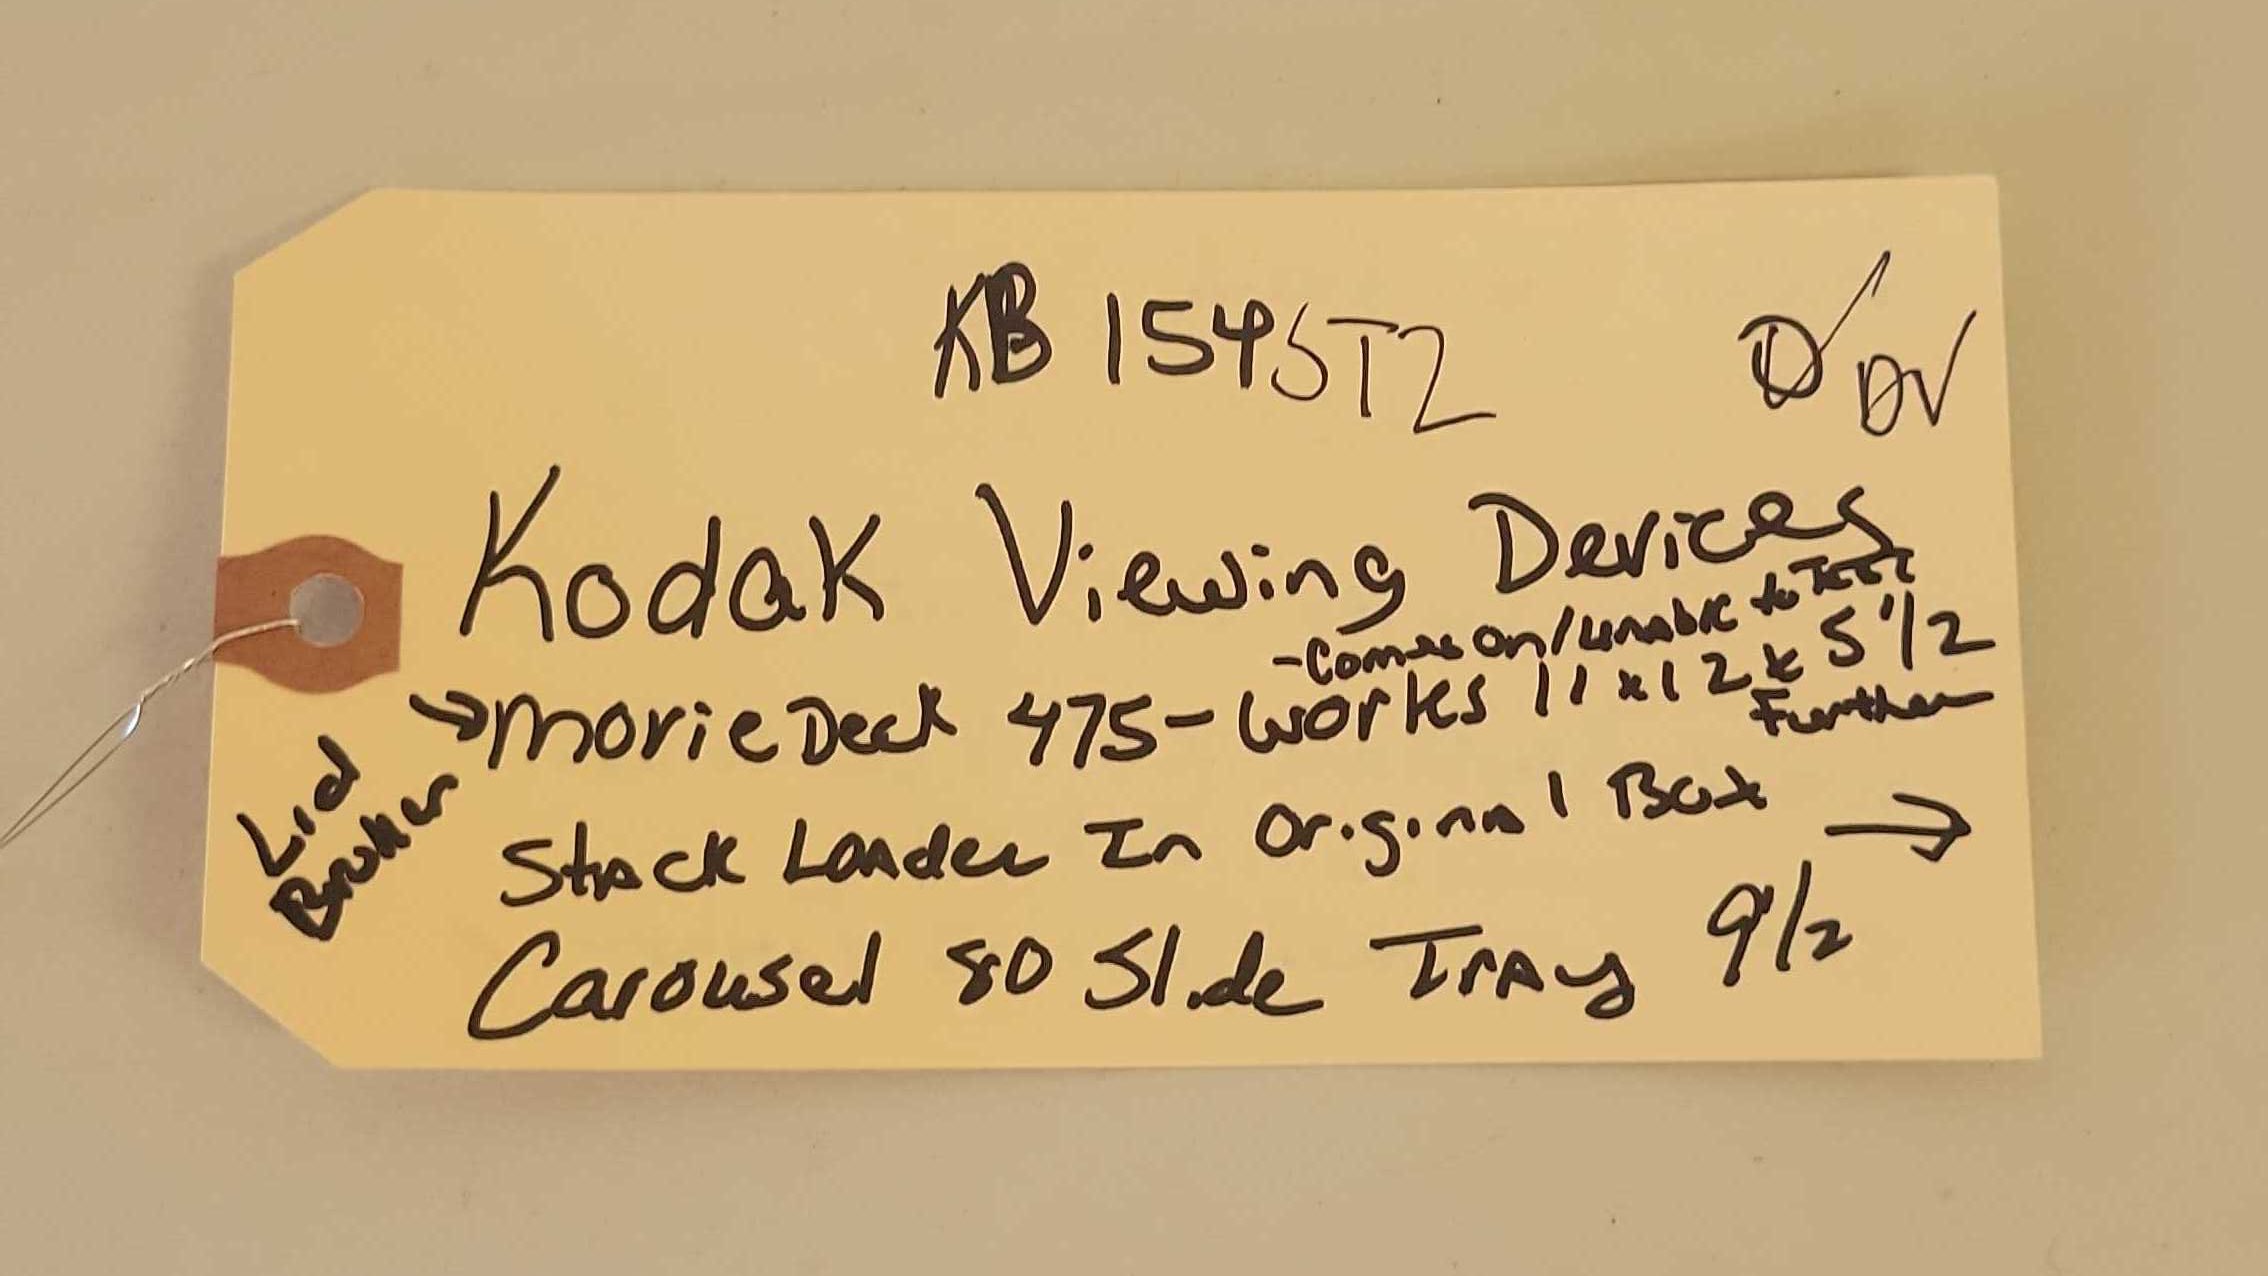 KB 154STZ
D✓ DV
Kodak Viewing Devices
-Comes on/unable to Test
Further
→MovieDeck 475-Works 11x12x5 1/2
Lid
Broken
Stack Loader In Original Box →
Carousel 80 Slide Tray 9 1/2